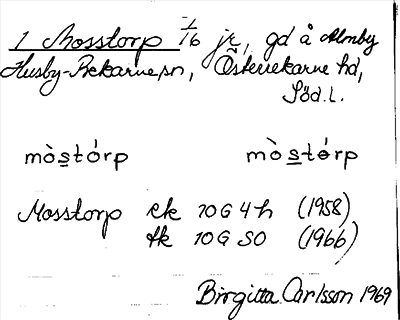 1 Mosstorp 1/16 jr, gd å Almby
Husby-Rekarne sn, Österrekarne hd,
Söd.l.
mòstórp mòstórp
Mosstorp ek 10G 4h (1958)
tk 10G SO (1966)
Birgitta Carlsson 1969